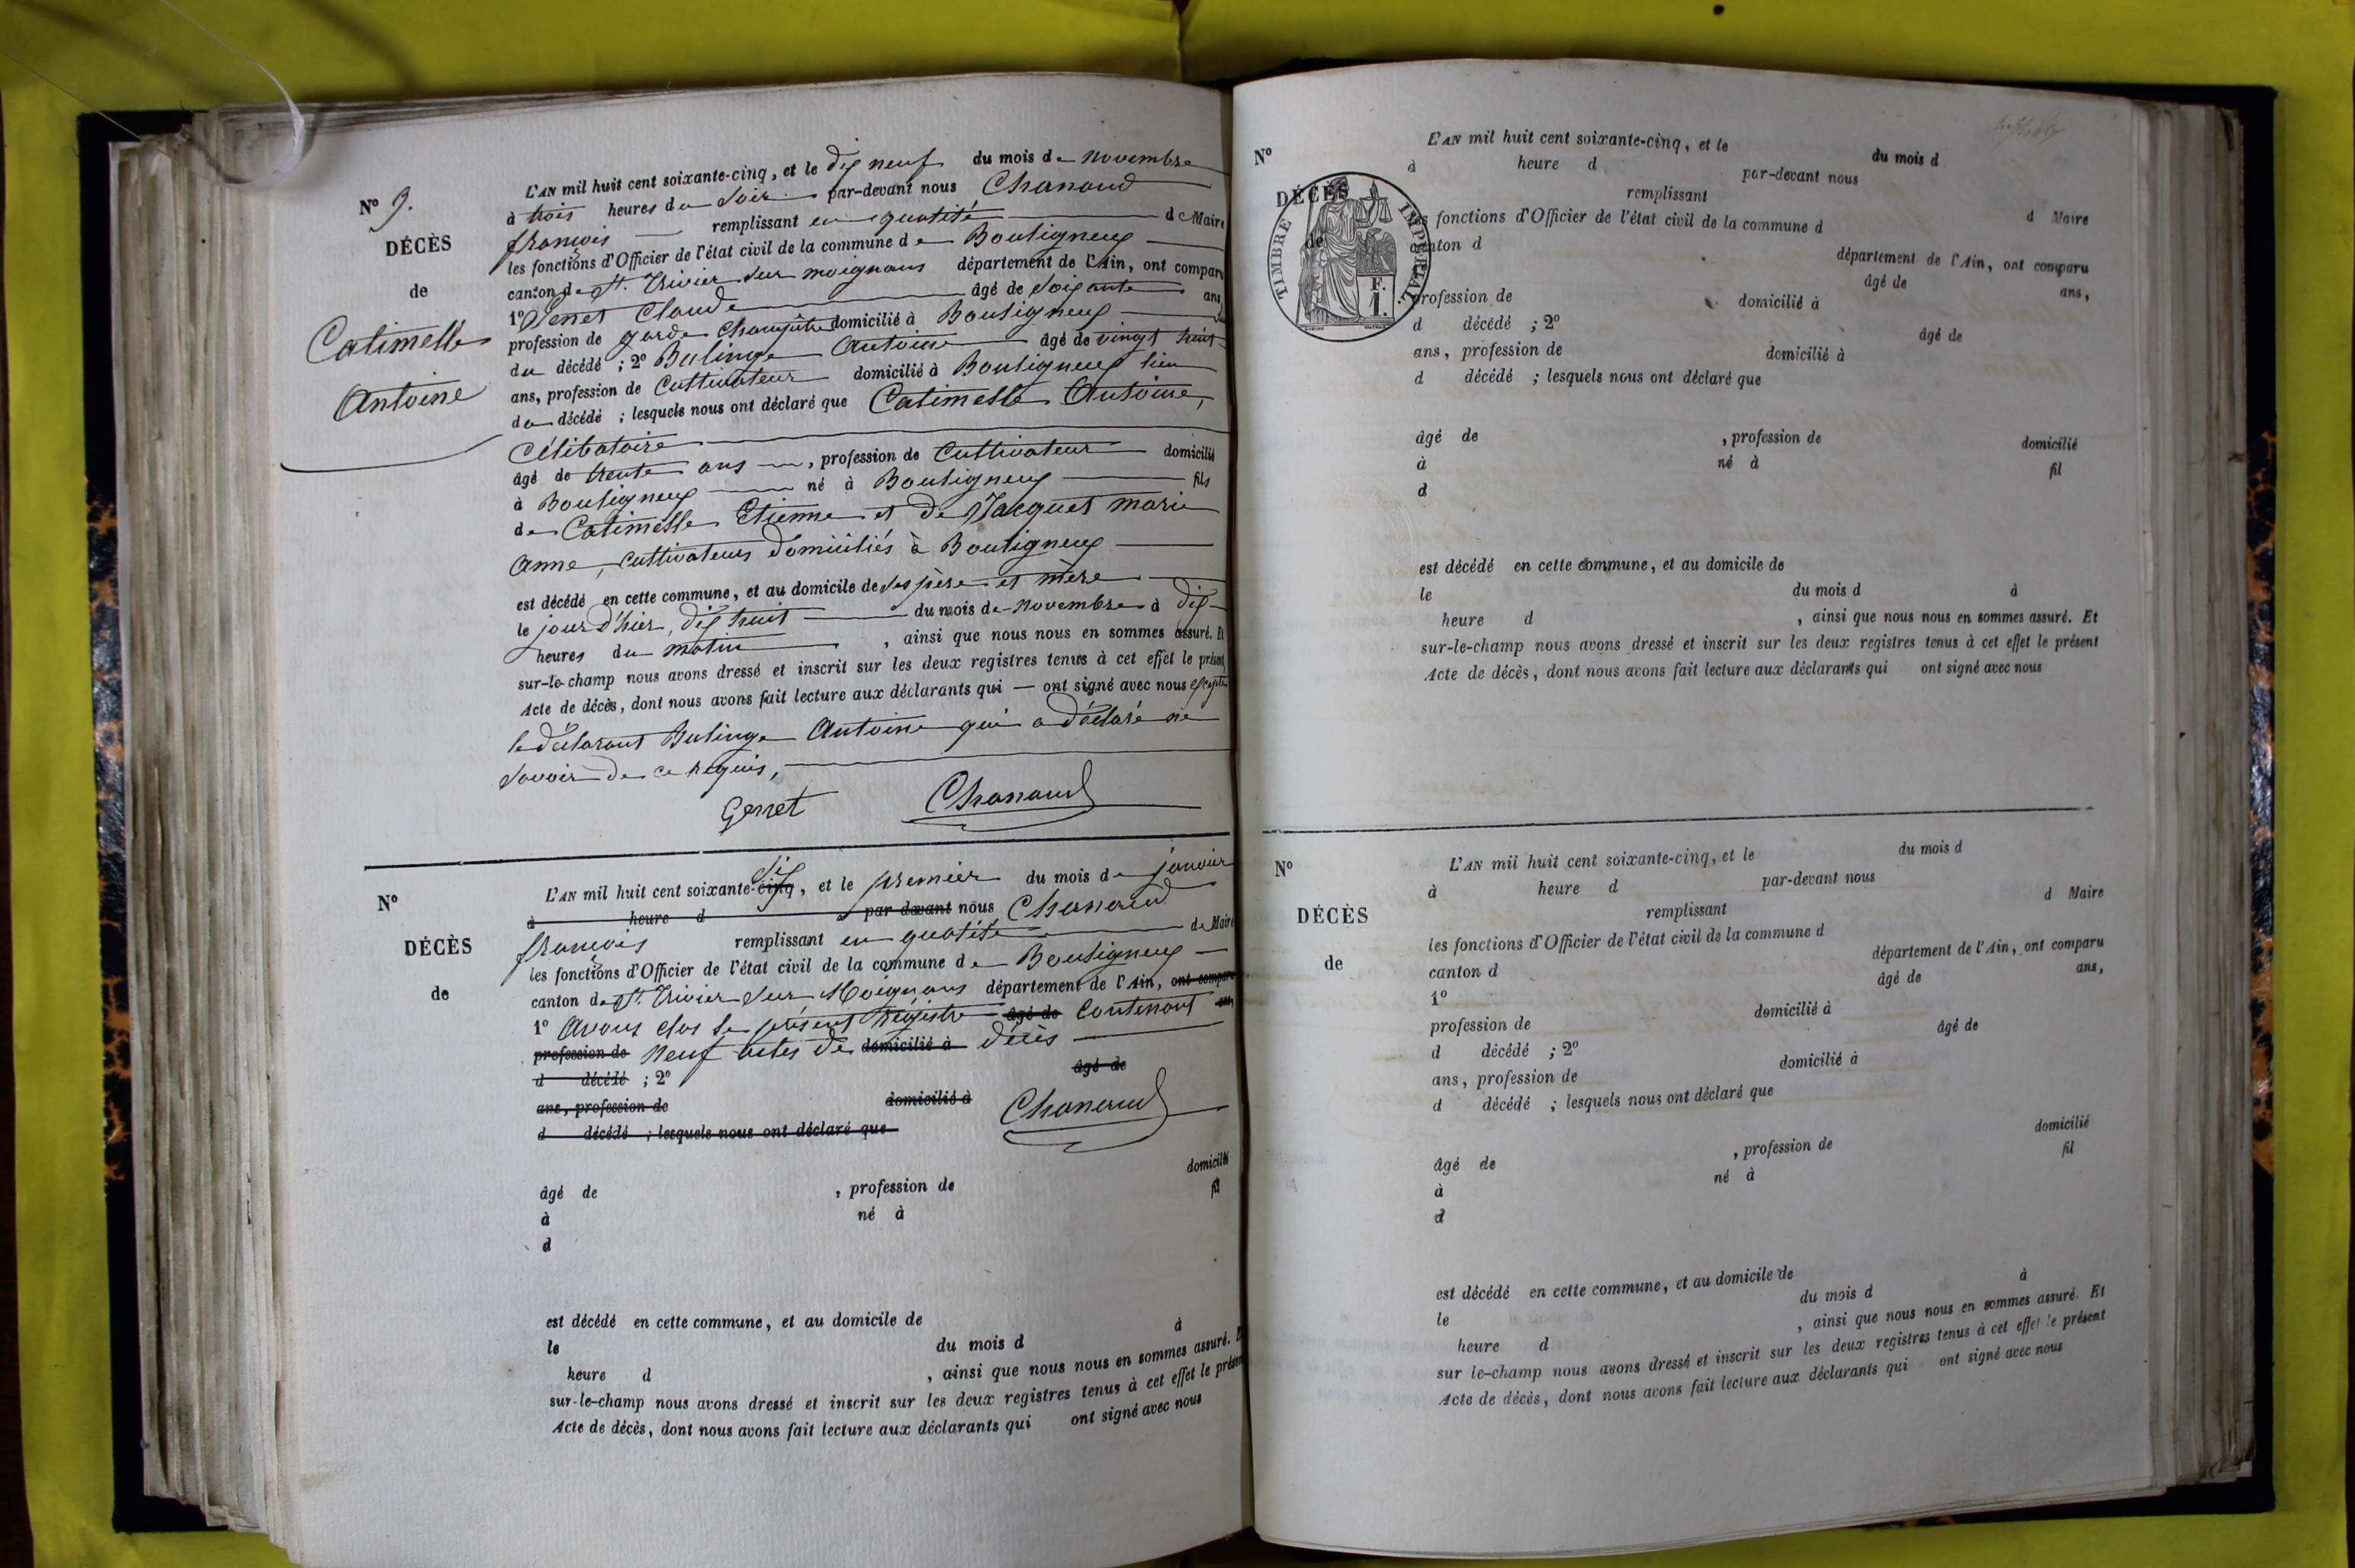 N° 9.
DÉCÈS
de
Catimelle
Antoine
L'AN mil huit cent soixante-cinq, et le dix neuf du mois de novembre
à trois heures du soir par-devant nous Chanaud
françois remplissant en qualité de Maire
les fonctions d'Officier de l'état civil de la commune de Bouligneux
canton de St. Trivier sur moignans département de l'Ain, ont comparu
1° Genet Claude âgé de soixante ans,
profession de garde Champêtre domicilié à Bouligneux
du décédé ; 2° Bulinge Antoine âgé de vingt huit
ans, profession de Cultivateur domicilié à Bouligneux lieu
du décédé ; lesquels nous ont déclaré que Catimelle Antoine,
Célibataire
âgé de trente ans, profession de Cultivateur domicilié
à Bouligneux né à Bouligneux fils
de Catimelle Etienne et de Jacquet marie
anne, cultivateurs domiciliés à Bouligneux
est décédé en cette commune, et au domicile de ses père et mère
le jour d'hier, dix huit du mois de novembre à dix
heures du matin, ainsi que nous nous en sommes assuré. Et
sur-le-champ nous avons dressé et inscrit sur les deux registres tenus à cet effet le présent
Acte de décès, dont nous avons fait lecture aux déclarants qui — ont signé avec nous excepté
le déclarant Bulinge Antoine qui a déclaré ne
savoir de ce requis,
Genet Chanaud
N°
DÉCÈS
de
L'AN mil huit cent soixante-cinq six, et le premier du mois de janvier
à heure d par devant nous Chanaud
françois remplissant en qualité de Maire
les fonctions d'Officier de l'état civil de la commune de Bouligneux
canton de St. Trivier sur Moignans département de l'Ain, ont comparu
1° Avons clos le présent registre âgé de Contenant ans,
profession de neuf actes de domicilié à décès
d décédé ; 2° âgé de
ans, profession de domicilié à
d décédé ; lesquels nous ont déclaré que
Chanaud
âgé de , profession de domicilié
à né à fil
d
est décédé en cette commune, et au domicile de
le du mois d à
heure d , ainsi que nous nous en sommes assuré. E
sur-le-champ nous avons dressé et inscrit sur les deux registres tenus à cet effet le présen
Acte de décès, dont nous avons fait lecture aux déclarants qui ont signé avec nous
N°
DÉCÈS
de
TIMBRE IMPÉRIAL
F.
1.
L'AN mil huit cent soixante-cinq, et le du mois d
à heure d par-devant nous
remplissant d Maire
les fonctions d'Officier de l'état civil de la commune d
canton d département de l'Ain, ont comparu
âgé de ans,
profession de domicilié à
d décédé ; 2° âgé de
ans, profession de domicilié à
d décédé ; lesquels nous ont déclaré que
âgé de , profession de domicilié
à né à fil
d
est décédé en cette commune, et au domicile de
le du mois d à
heure d , ainsi que nous nous en sommes assuré. Et
sur-le-champ nous avons dressé et inscrit sur les deux registres tenus à cet effet le présent
Acte de décès, dont nous avons fait lecture aux déclarants qui ont signé avec nous
N°
DÉCÈS
de
L'AN mil huit cent soixante-cinq, et le du mois d
à heure d par-devant nous
remplissant d Maire
les fonctions d'Officier de l'état civil de la commune d
canton d département de l'Ain, ont comparu
1° âgé de ans,
profession de domicilié à
d décédé ; 2° âgé de
ans, profession de domicilié à
d décédé ; lesquels nous ont déclaré que
âgé de , profession de domicilié
à né à fil
d
est décédé en cette commune, et au domicile de
le du mois d à
heure d , ainsi que nous nous en sommes assuré. Et
sur le-champ nous avons dressé et inscrit sur les deux registres tenus à cet effet le présent
Acte de décès, dont nous avons fait lecture aux déclarants qui ont signé avec nous